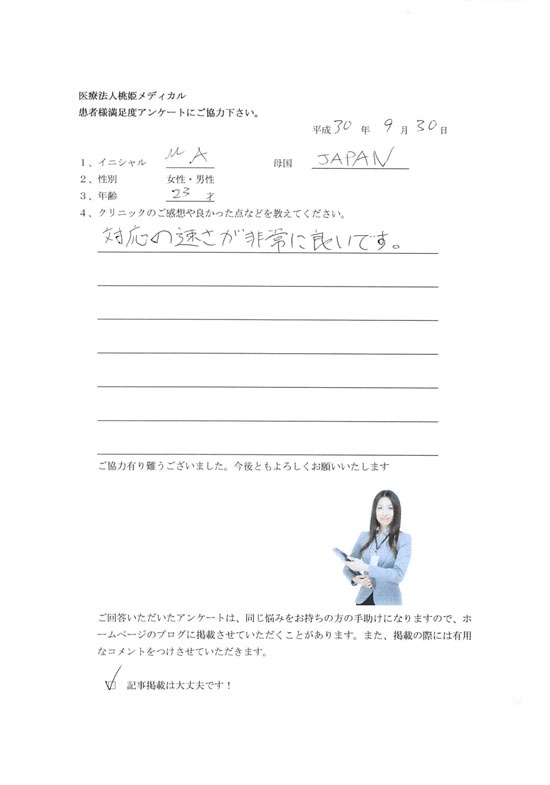 医療法人桃姫メディカル
患者様満足度アンケートにご協力下さい。
平成 30 年 9 月 30 日
1、イニシャル M.A 母国 JAPAN
2、性別 女性・男性
3、年齢 23 才
4、クリニックのご感想や良かった点などを教えてください。
対応の速さが非常に良いです。
ご協力有り難うございました。今後ともよろしくお願いいたします
ご回答いただいたアンケートは、同じ悩みをお持ちの方の手助けになりますので、ホ
ームページのブログに掲載させていただくことがあります。また、掲載の際には有用
なコメントをつけさせていただきます。
☑ 記事掲載は大丈夫です！